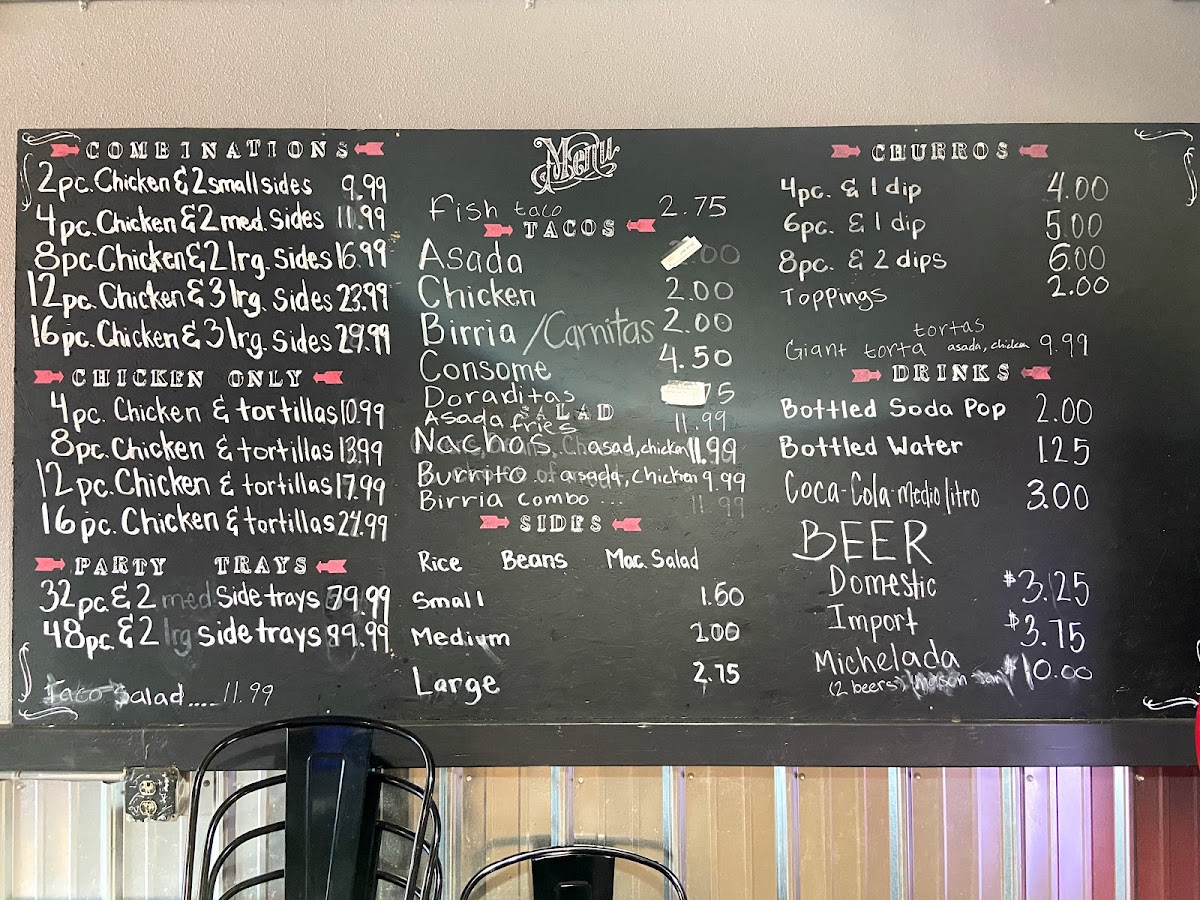 COMBINATIONS
2pc. Chicken & 2 small sides 9.99
4pc. Chicken & 2 med. sides 11.99
8pc. Chicken & 2 lrg. sides 16.99
12pc. Chicken & 3 lrg. sides 23.99
16pc. Chicken & 3 lrg. sides 29.99
CHICKEN ONLY
4pc. Chicken & tortillas 10.99
8pc. Chicken & tortillas 13.99
12pc. Chicken & tortillas 17.99
16pc. Chicken & tortillas 24.99
PARTY TRAYS
32pc. & 2 med side trays 79.99
48pc. & 2 lrg side trays 99.99
Taco Salad..... 11.99
Menu
Fish taco 2.75
TACOS
Asada .00
Chicken 2.00
Birria / Carnitas 2.00
Consome 4.50
Doraditas 75
SALAD
Asada fries 11.99
Nachos asad, chicken 11.99
Burrito asada, chicken 9.99
Birria combo ... 11.99
SIDES
Rice Beans Mac. Salad
Small 1.50
Medium 2.00
Large 2.75
CHURROS
4pc. & 1 dip 4.00
6pc. & 1 dip 5.00
8pc. & 2 dips 6.00
Toppings 2.00
tortas
Giant torta asada, chicken 9.99
DRINKS
Bottled Soda Pop 2.00
Bottled Water 1.25
Coca-Cola medio litro 3.00
BEER
Domestic $3.25
Import $3.75
Michelada $10.00
(2 beers)